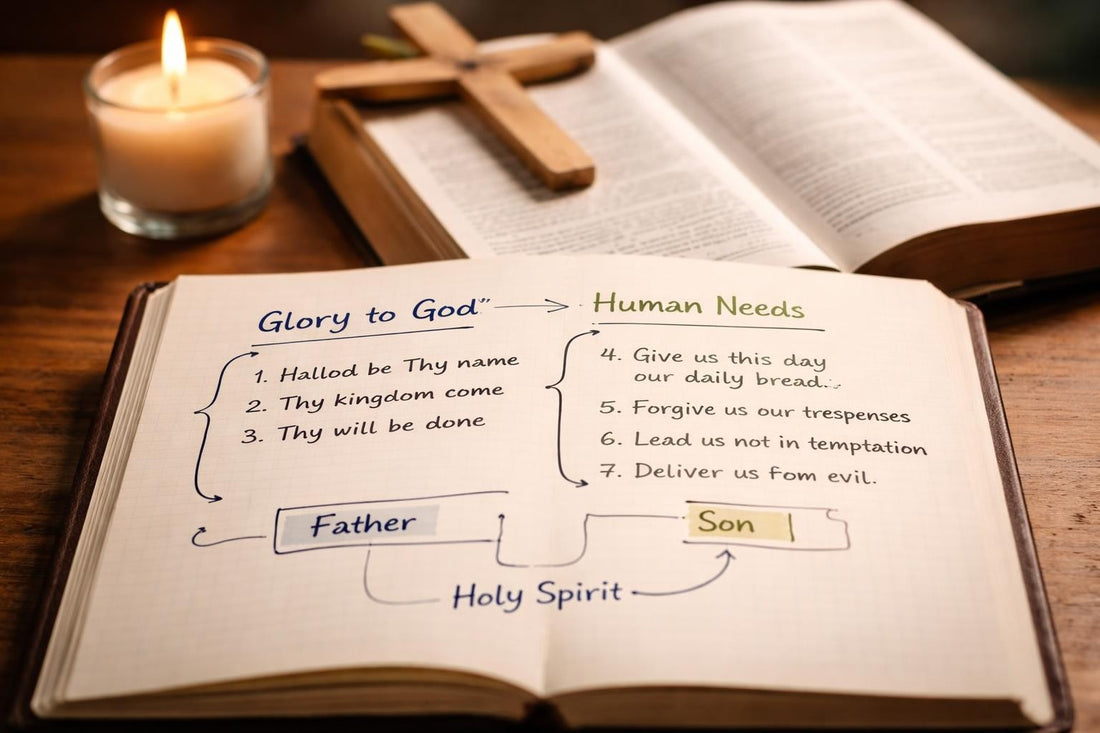 Glory to God"
1. Hallod be Thy name
2. Thy kingdom come
3. Thy will be done
Human Needs
4. Give us this day
our daily bread..
5. Forgive us our trespenses
6. Lead us not in temptation
7. Deliver us fom evil.
Father
Son
Holy Spirit